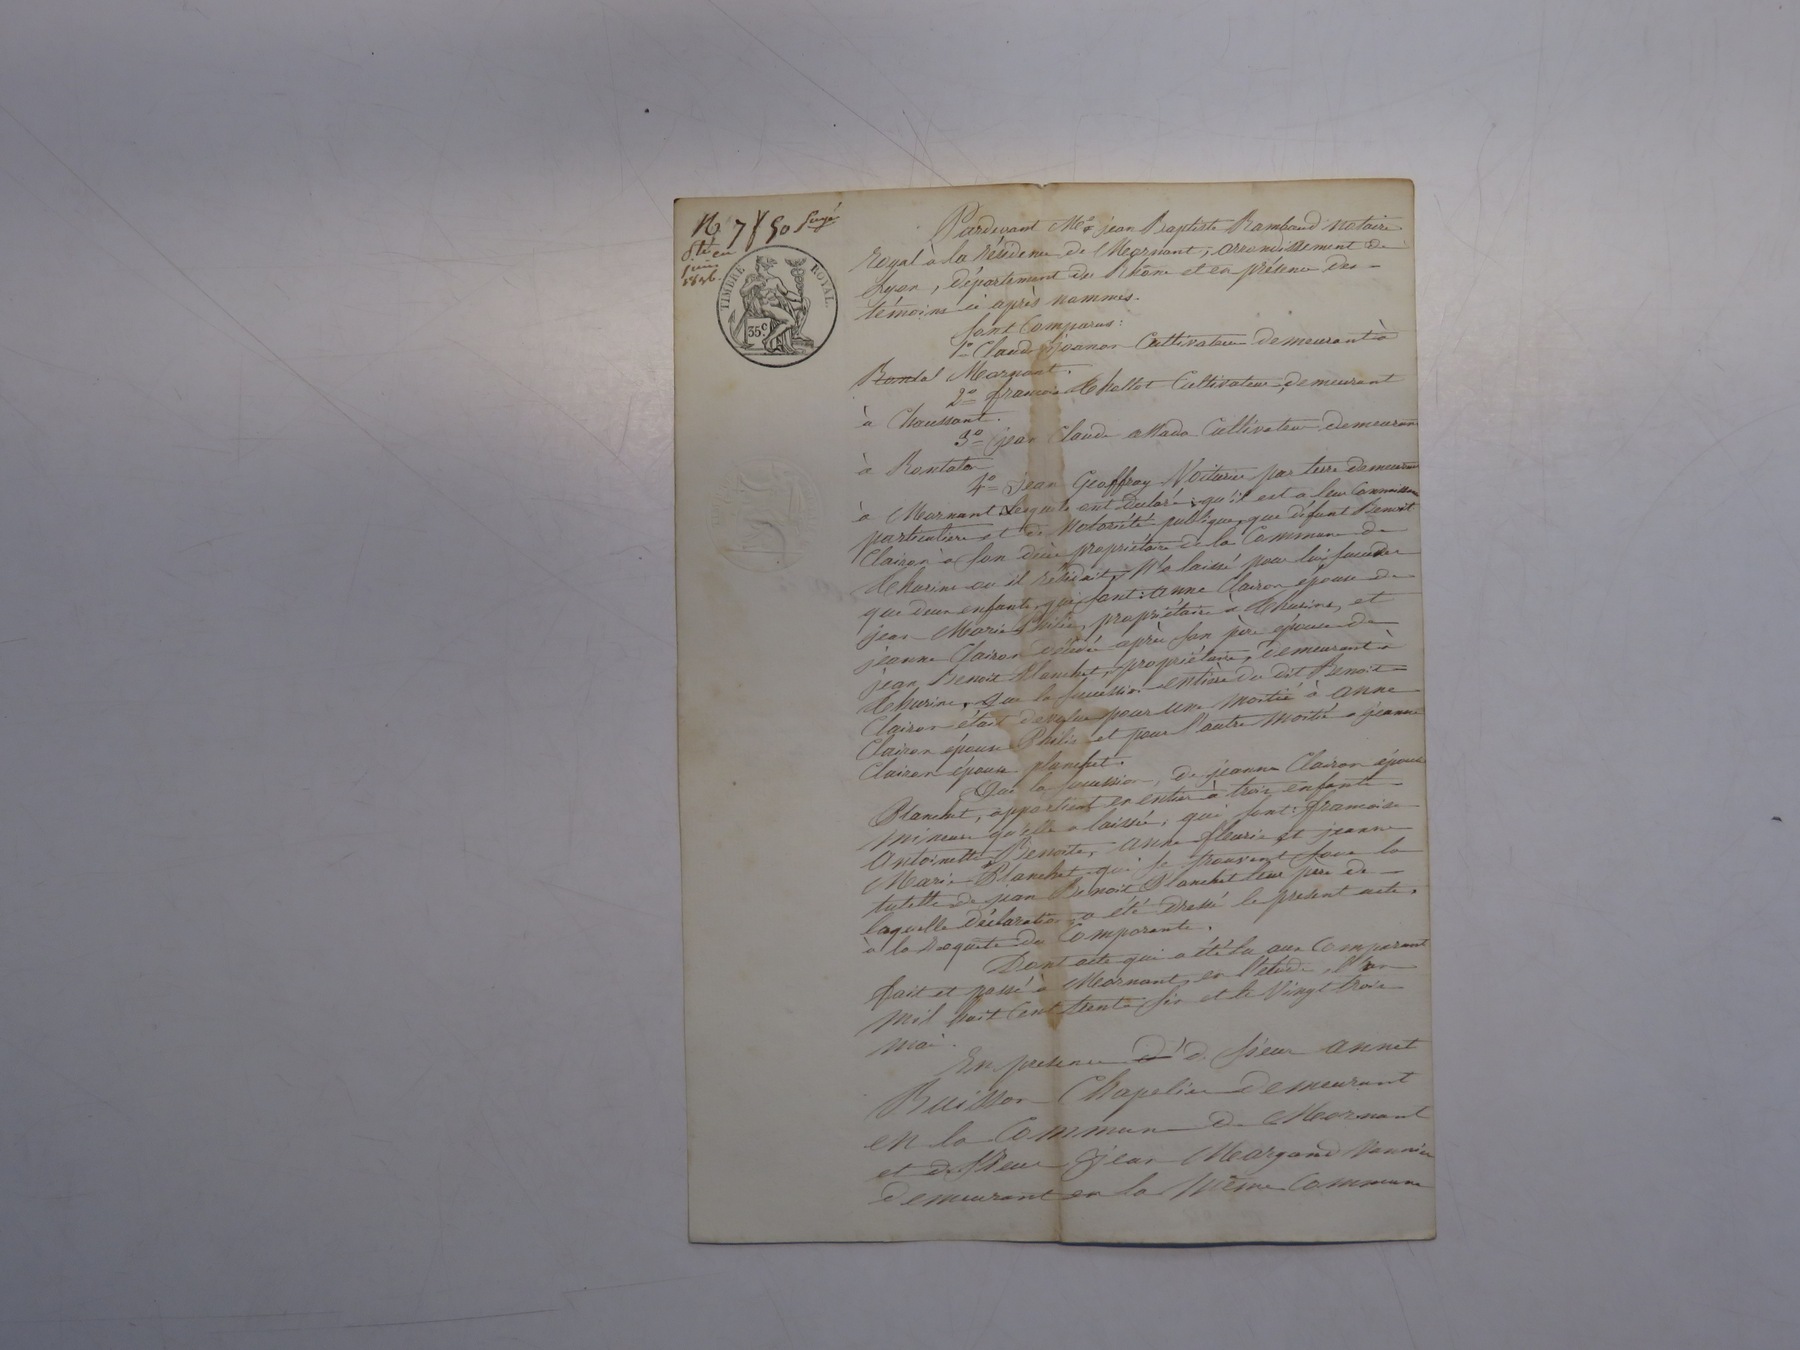 N° 7 f 50
juin
1836
TIMBRE ROYAL
35c
Pardevant Me jean Baptiste Rambaud Notaire
Royal à la résidence de Mornant, arrondissement de
Lyon, département du Rhône et en présence des
témoins ci après nommés.
Sont Comparus:
1° Claude joanon Cultivateur demeurant à
Mornant.
2° françois Cultivateur, demeurant
à Chaussant.
3° jean Claude Cultivateur demeurant
à Rontalon
4° jean Geoffray Voiturier par terre demeurant
à Mornant Lesquels ont déclaré, qu'il est a leur Connaissance
particulière et de Notoriété publique, que défunt Benoit
Clairon à son décès propriétaire de la Commune de
Thurins ou il résidait, N'a laissé pour lui succéder
que deux enfants, qui sont: Anne Clairon épouse de
jean Marie Philis, propriétaire à Thurins, et
jeanne Clairon décédée après son père épouse de
jean Benoit Planchet, propriétaire, demeurant à
Thurins, que la succession entière du dit Benoit
Clairon était dévolue pour une moitié à Anne
Clairon épouse Philis et pour l'autre moitié a jeanne
Clairon épouse planchet.
Que la succession, de jeanne Clairon épouse
Planchet, appartient en entier à trois enfants
mineurs qu'elle a laissés, qui sont: françoise
Antoinette Benoite, Anne fleurie et jeanne
Marie Planchet qui se trouvent sous la
tutelle de jean Benoit Planchet leur père de
laquelle déclaration a été dressé le présent acte,
à la requête du Comparants.
Dont acte qui a été lu aux Comparants
fait et passé à Mornant en l'étude, l'an
mil huit Cent trente six et le Vingt trois
mai.
En présence de Sieur Annet
Buisson Chapelier demeurant
en la Commune de Mornant
et de Sieur jean Margand Vannier
demeurant en la même Commune